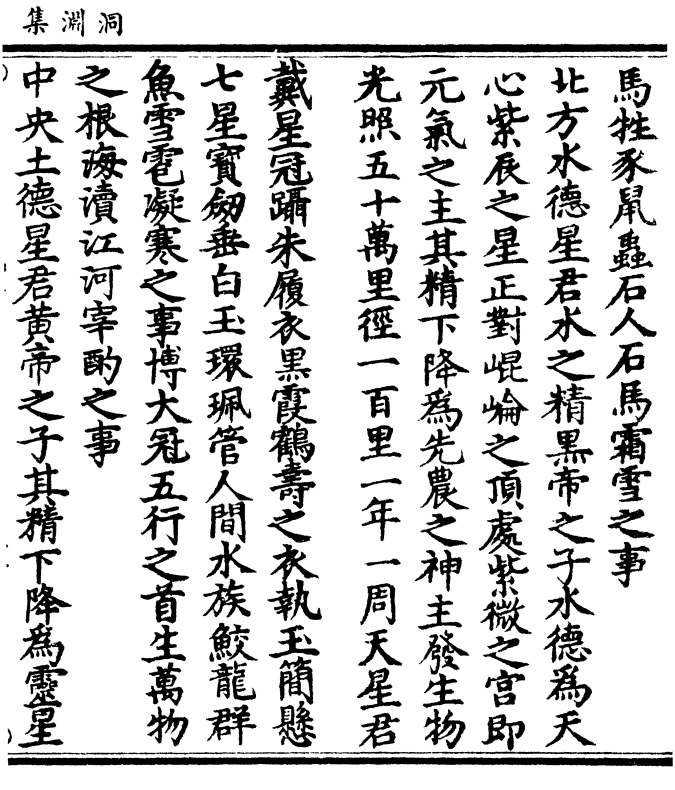 洞淵集
馬牲豕鼠蟲石人石馬霜雪之事
北方水德星君水之精黑帝之子水德為天
心紫辰之星正對崐崘之頂處紫微之宫即
元氣之主其精下降為先農之神主發生物
光照五十萬里徑一百里一年一周天星君
戴星冠躡朱履衣黒霞鶴壽之衣執玉簡懸
七星寳劒垂白玉環珮管人間水族鮫龍群
魚雪雹凝寒之事博大冠五行之首生萬物
之根海瀆江河宰酌之事
中央土德星君黄帝之子其精下降為靈星